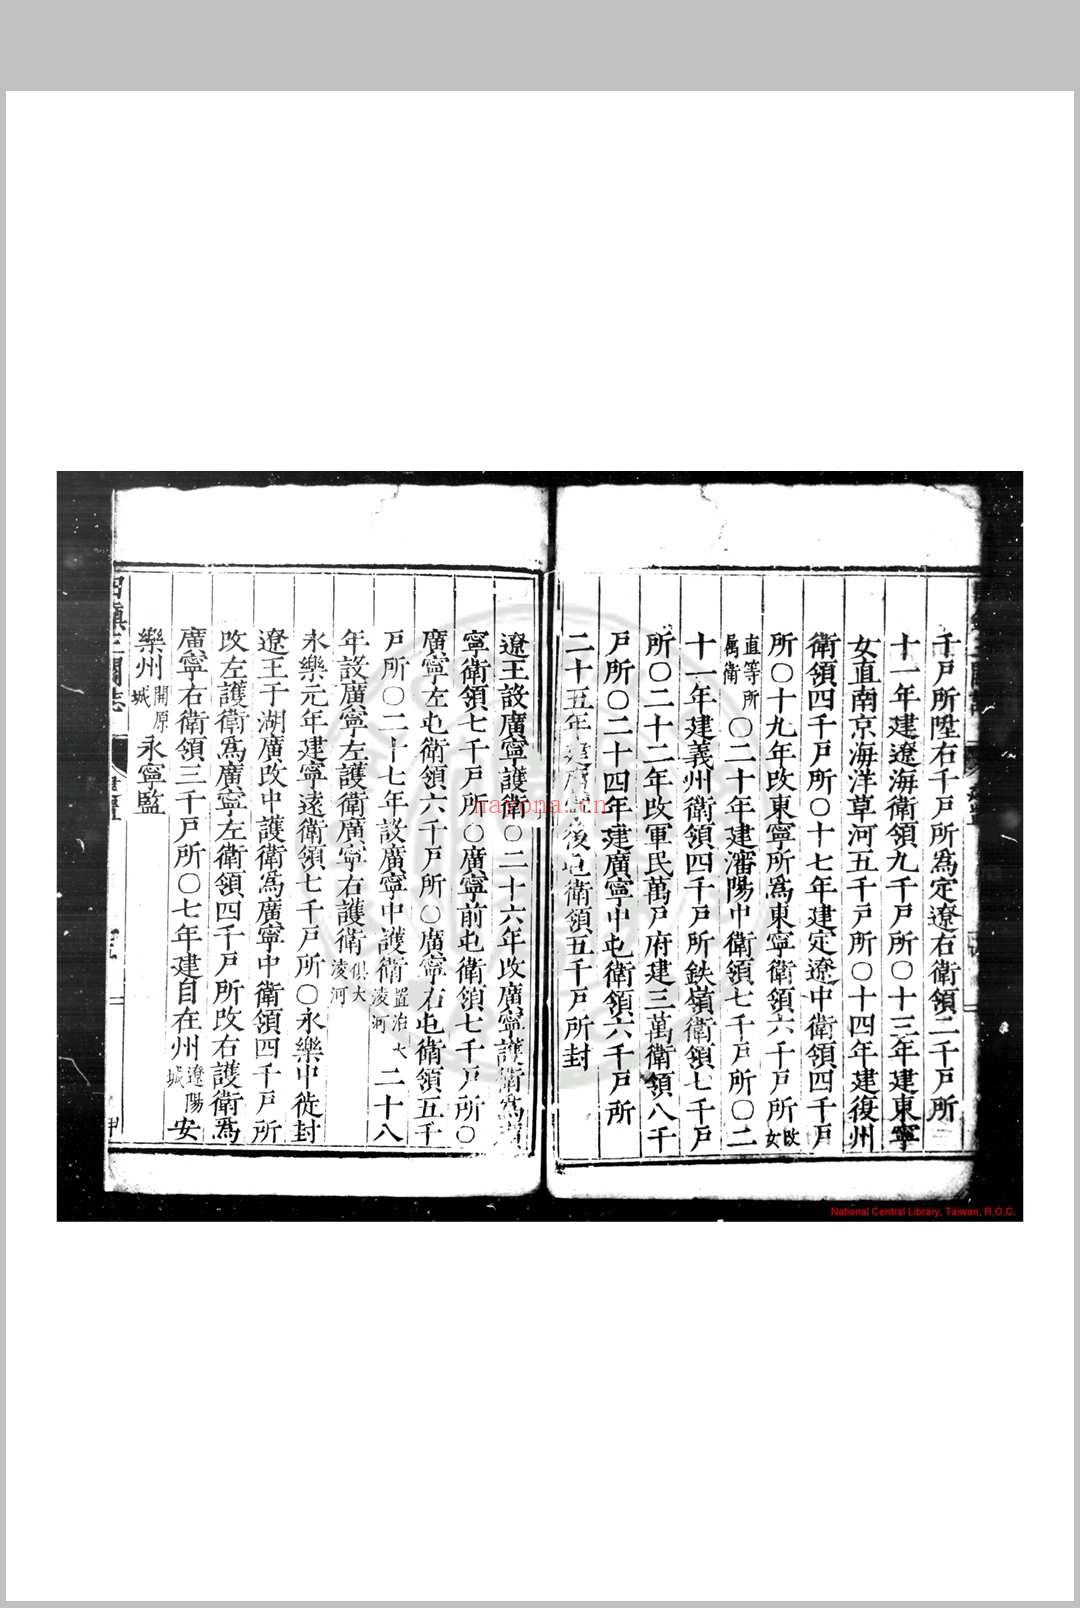 千戸所陞右千戸所為定遼右衛領二千戸所
十一年建遼海衛領九千戸所〇十三年建東寧
女直南京海洋草河五千戸所〇十四年建復州
衛領四千戸所〇十七年建定遼中衛領四千戸
所〇十九年改東寧所為東寧衛領六千戸所改女
直等所属衛〇二十年建瀋陽中衛領七千戸所〇二
十一年建義州衛領四千戸所鉄嶺衛領七千戸
所〇二十二年改軍民萬戸府建三萬衛領八千
戸所〇二十四年建廣寧中屯衛領六千戸所
二十五年建後屯衛領五千戸所封
遼王設廣寧護衛〇二十六年改廣寧護衛為廣
寧衛領七千戸所〇廣寧前屯衛領七千戸所〇
廣寧左屯衛領六千戸所〇廣寧右屯衛領五千
戸所〇二十七年設廣寧中護衛置治大淩河二十八
年設廣寧左護衛廣寧右護衛俱大淩河
永樂元年建寧遠衛領七千戸所〇永樂中徙封
遼王于湖廣改中護衛為廣寧中衛領四千戸所
改左護衛為廣寧左衛領四千戸所改右護衛為
廣寧右衛領三千戸所〇七年建自在州遼陽城安
樂州開原城永寧監
四鎮三關志
nayona.cn
National Central Library, Taiwan, R.O.C.